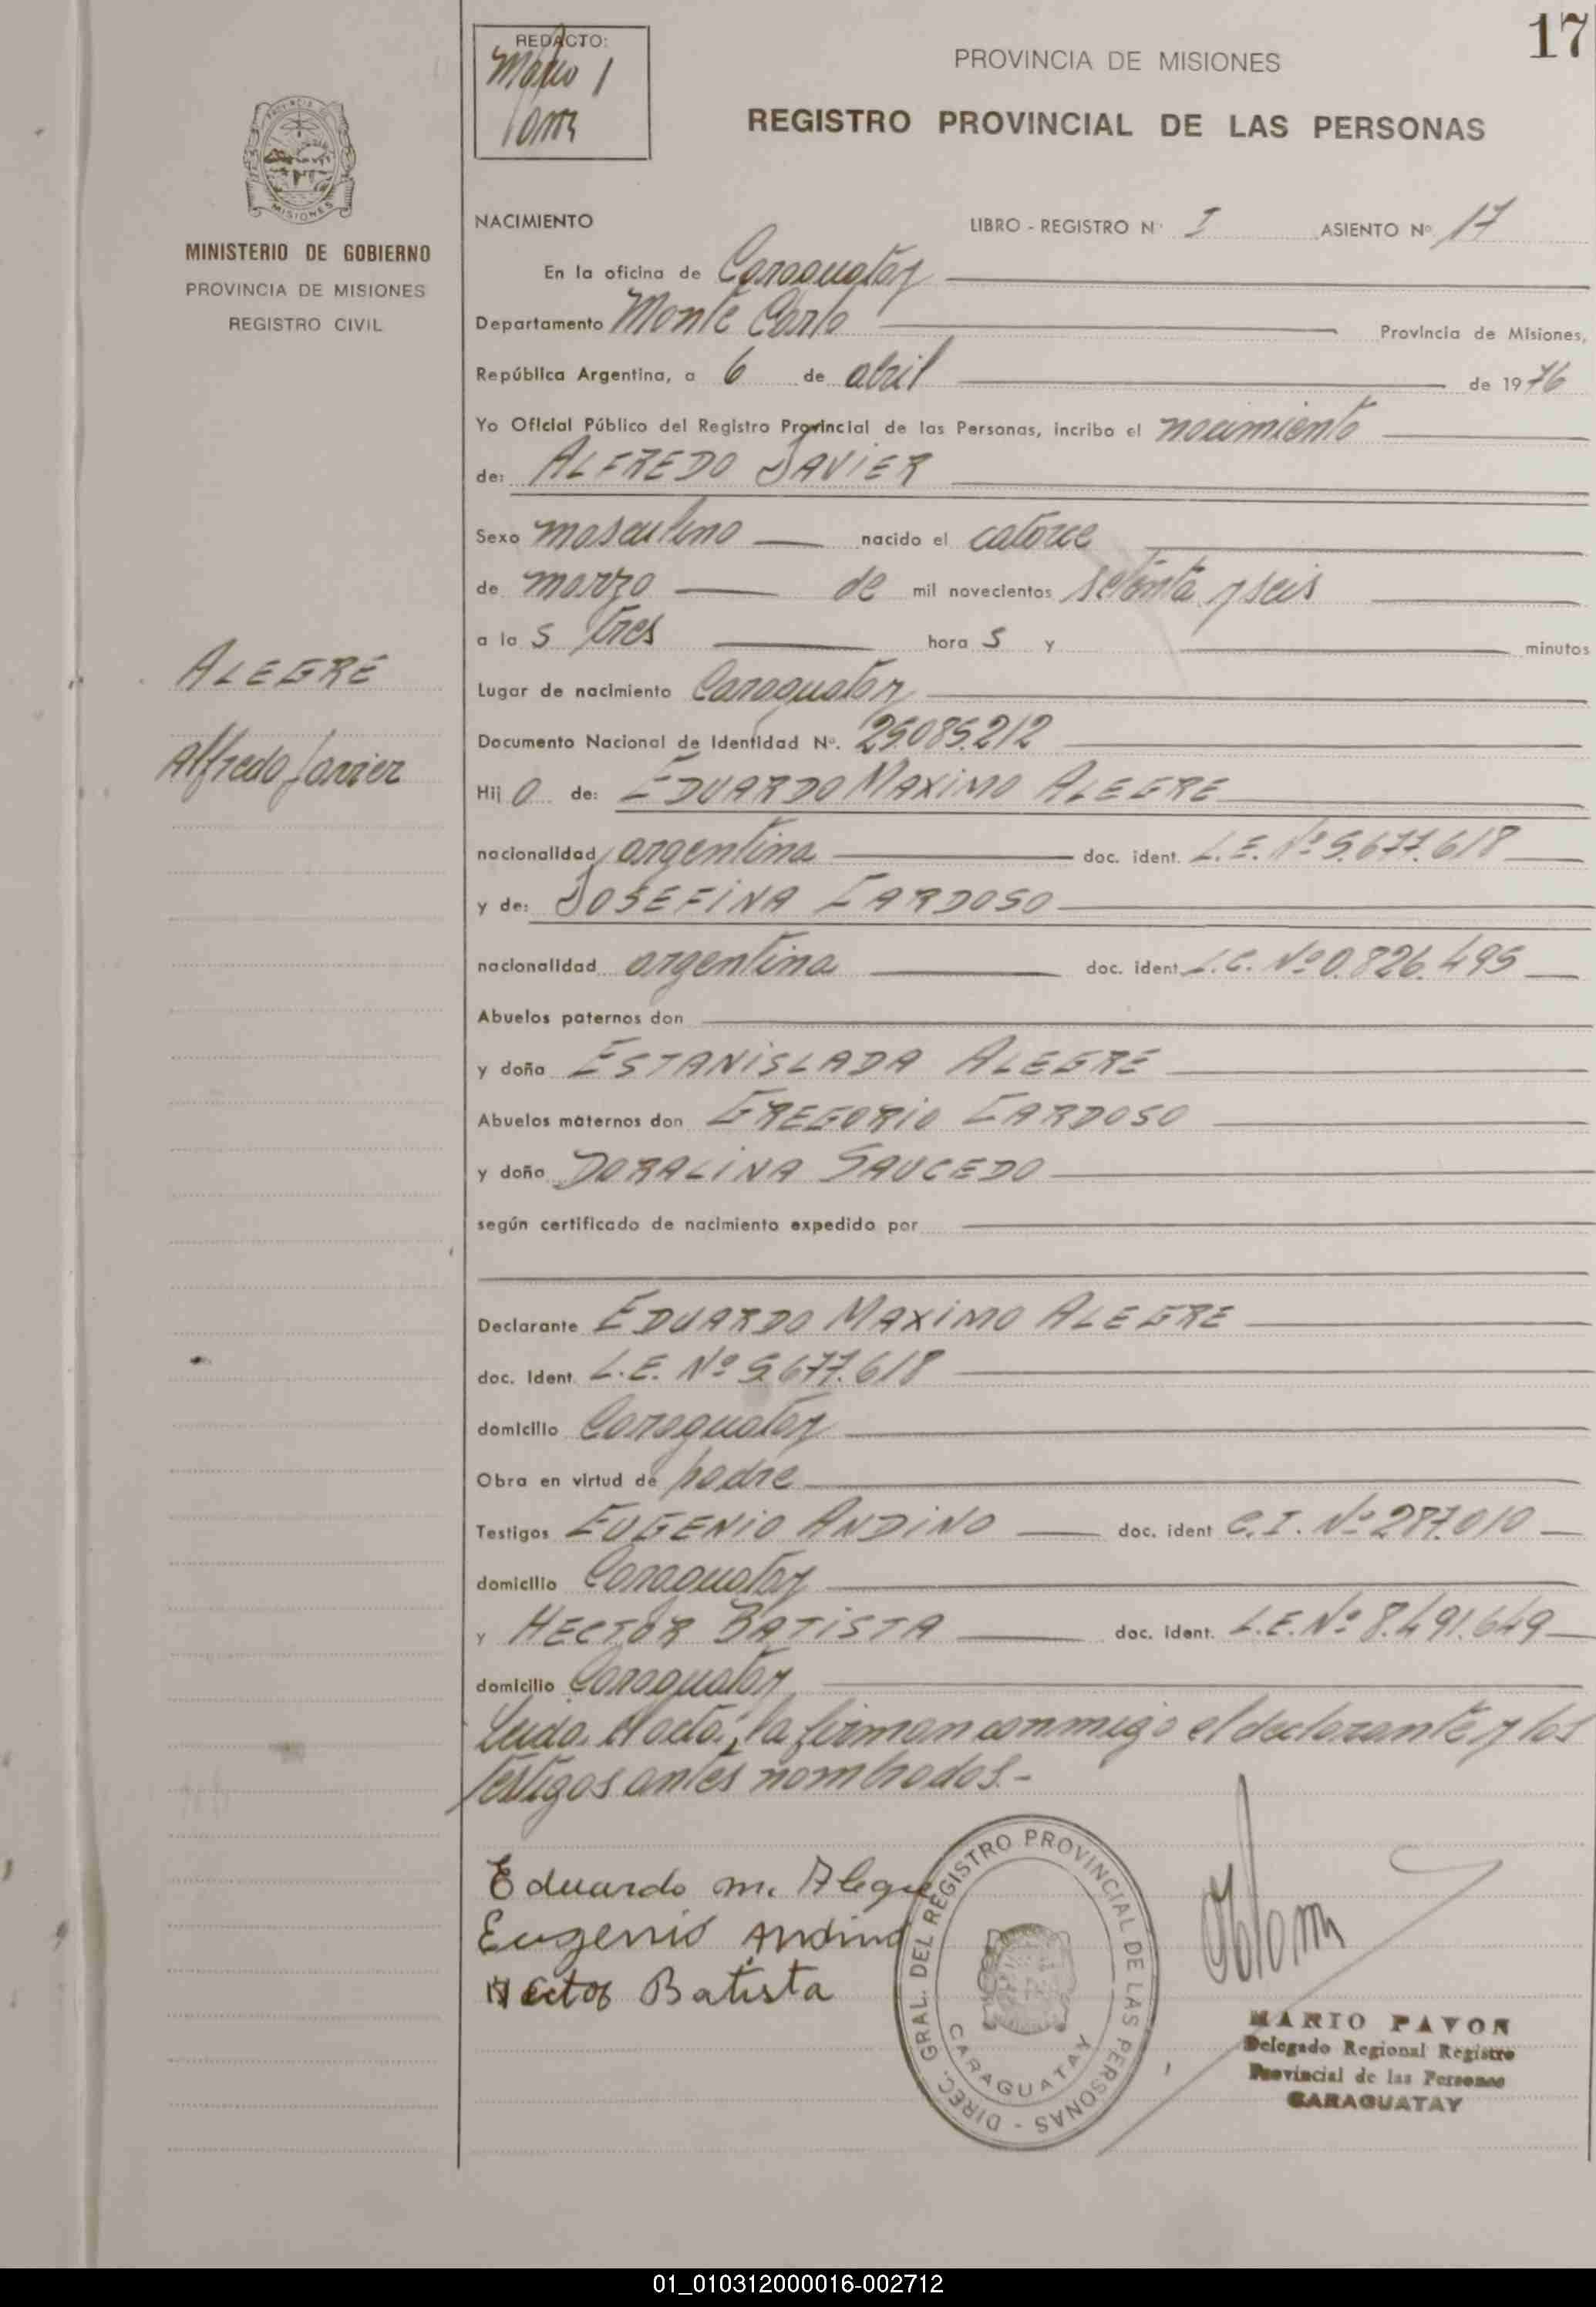 17
REDACTO:
Mario
PROVINCIA DE MISIONES
REGISTRO PROVINCIAL DE LAS PERSONAS
PROVINCIA
MISIONES
MINISTERIO DE GOBIERNO
PROVINCIA DE MISIONES
REGISTRO CIVIL
ALEGRE
Alfredo Javier
NACIMIENTO LIBRO - REGISTRO Nº I ASIENTO Nº 17
En la oficina de Caraguatay
Departamento Monte Carlo Provincia de Misiones,
República Argentina, a 6 de abril de 1976
Yo Oficial Público del Registro Provincial de las Personas, incribo el nacimiento
de: ALFREDO JAVIER
Sexo masculino nacido el catorce
de marzo de mil novecientos setenta y seis
a las tres horas y minutos
Lugar de nacimiento Caraguatay
Documento Nacional de Identidad Nº. 25.085.212
Hijo de: EDUARDO MAXIMO ALEGRE
nacionalidad argentina doc. ident. L.E. Nº 5.677.618
y de: JOSEFINA CARDOSO
nacionalidad argentina doc. ident. L.C. Nº 0.826.495
Abuelos paternos don
y doña ESTANISLADA ALEGRE
Abuelos maternos don GREGORIO CARDOSO
y doña DORALINA SAUCEDO
según certificado de nacimiento expedido por
Declarante EDUARDO MAXIMO ALEGRE
doc. Ident. L.E. Nº 5.677.618
domicilio Caraguatay
Obra en virtud de padre
Testigos EUGENIO ANDINO doc. ident C.I. Nº 287.010
domicilio Caraguatay
y HECTOR BATISTA doc. ident. L.E. Nº 8.491.649
domicilio Caraguatay
Leida el acta, la firman conmigo el declarante y los
testigos antes nombrados.-
Eduardo M. Alegre
Eugenio Andino
Hector Batista
DIREC. GRAL. DEL REGISTRO PROVINCIAL DE LAS PERSONAS -
CARAGUATAY
MARIO PAVON
Delegado Regional Registro
Provincial de las Personas
CARAGUATAY
01_010312000016-002712